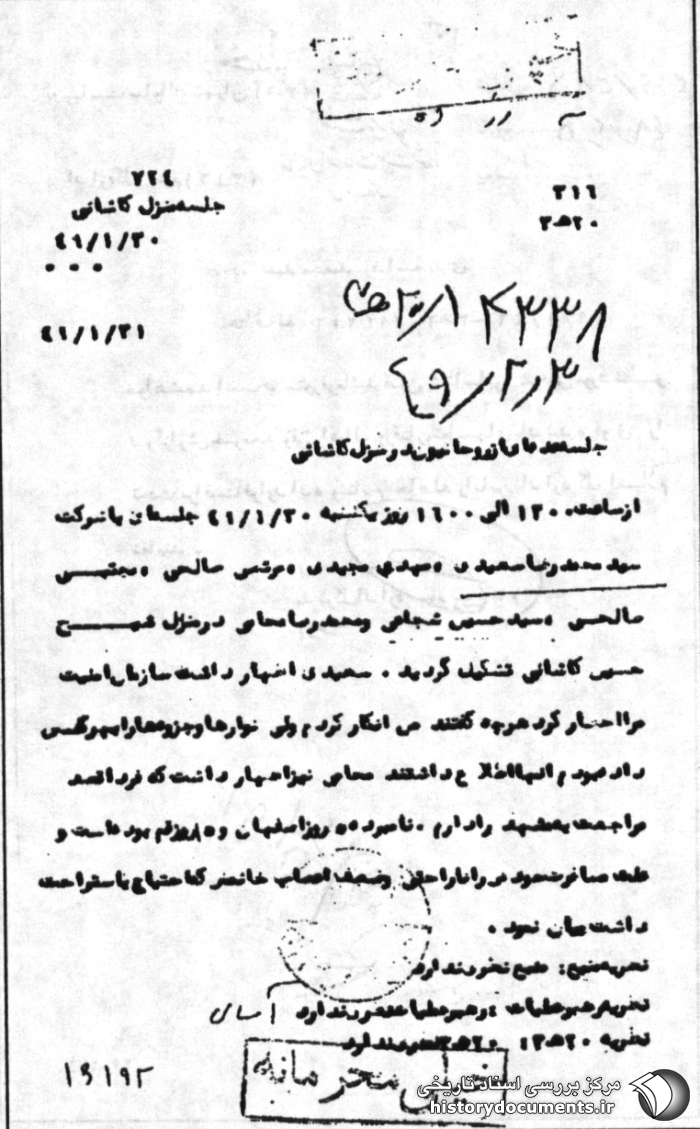 ۳۱۶
۲۰ﻫ۳
۷۲۴
جلسه منزل کاشانی
۴۹/۱/۳۰
۴۹/۱/۳۱
۲۰/۱۴۳۳۸ ﻫ۳
۴۹/۲/۳
جلسه عده‌ای از روحانیون در منزل کاشانی
از ساعت ۱۳۰۰ الی ۱۶۰۰ روز یکشنبه ۴۹/۱/۳۰ جلسه‌ای با شرکت
سید محمد رضا سعیدی، مهدی مجیدی، مرتضی صالحی، مجتبی
صالحی، سید حسین شجاعی و محمد رضا محامی در منزل شیخ
حسین کاشانی تشکیل گردید. سعیدی اظهار داشت سازمان امنیت
مرا احضار کرد هر چه گفتند من انکار کردم ولی نوارها و جزوه‌ها را بهر کس
داده بودم آنها اطلاع داشتند محامی نیز اظهار داشت که فردا قصد
مراجعت به مشهد را دارم. نامبرده روز اصفهان و ۸ روز قم بوده است و
علت مسافرت خود را ناراحتی و ضعف اعصاب خانمش که احتیاج باستراحت
داشت بیان نمود.
نظریه منبع: منبع نظری ندارد
نظریه رهبر عملیات: رهبر عملیات نظری ندارد
نظریه ۲۰ﻫ۳: ۲۰ﻫ۳ نظری ندارد
خیلی محرمانه
۱۶۱۹۲
مرکز بررسی اسناد تاریخی
historydocuments.ir